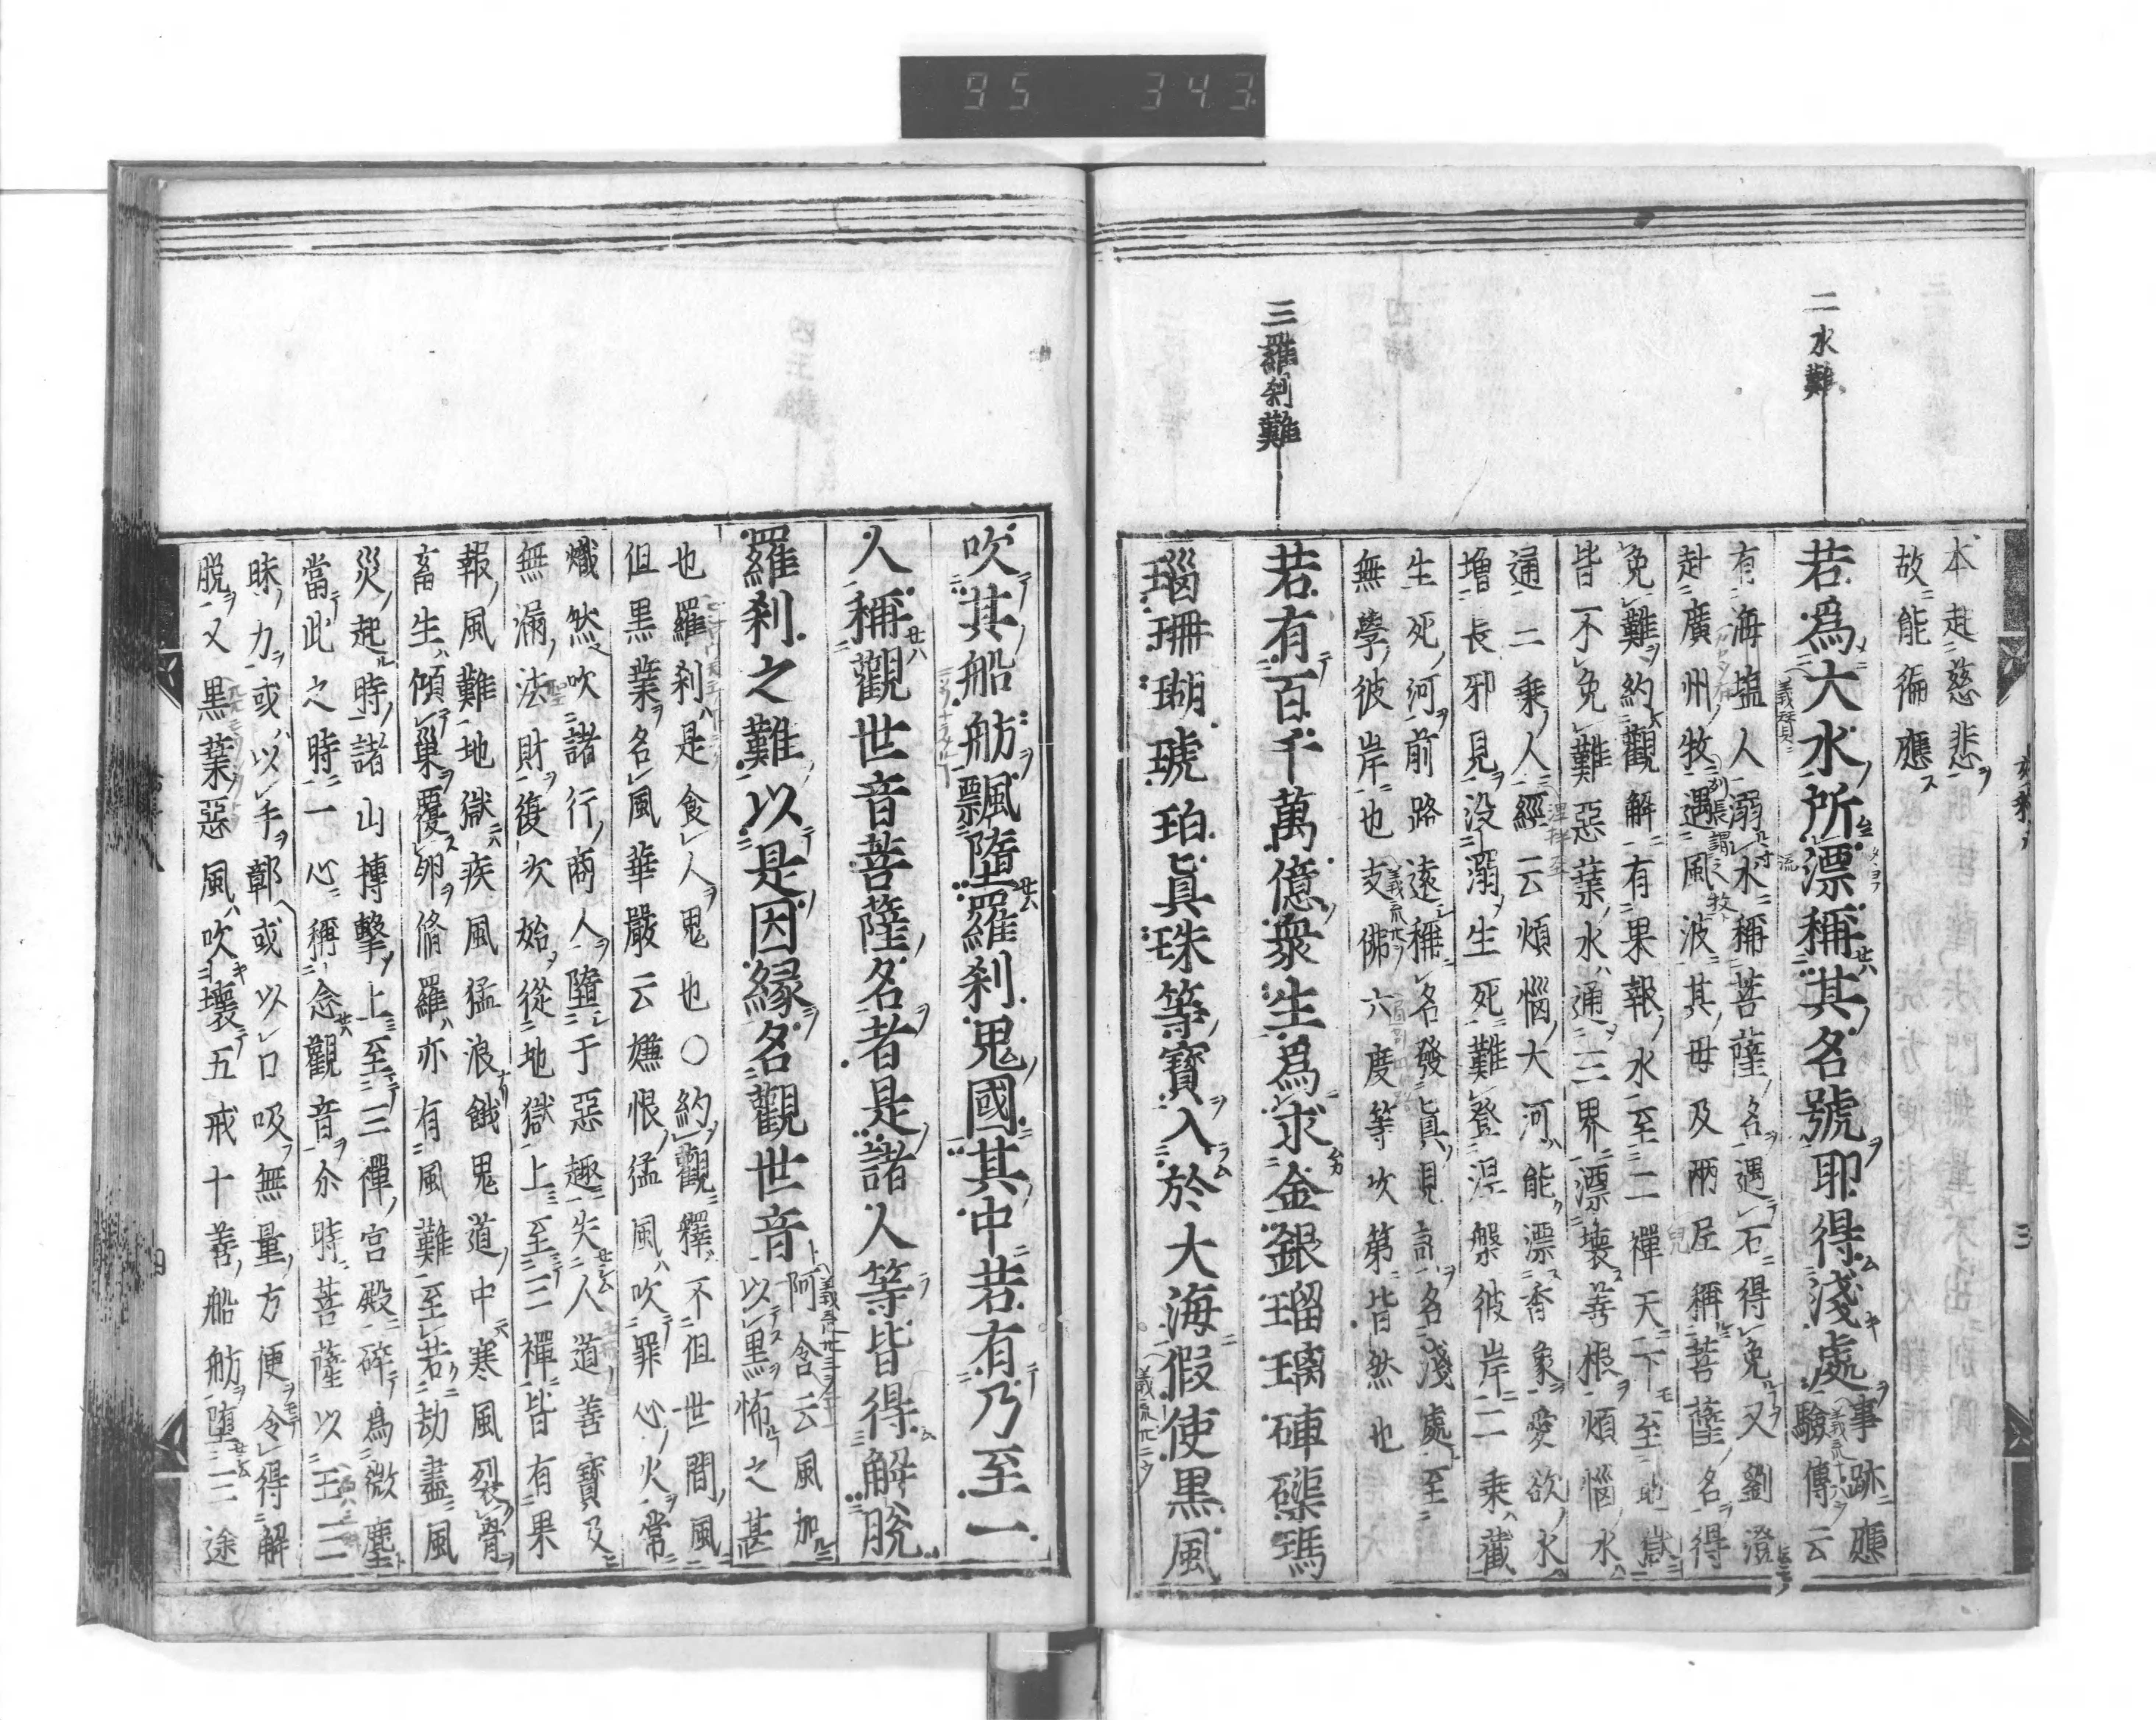 95 343
二水難
三羅刹難
本赴慈悲
故能徧應
若爲大水所漂稱其名號即得淺處
事跡應
驗傳云
有海塩人溺水稱菩薩名遇石得免又劉澄
赴廣州牧遇風波其母及兩尼稱菩薩名得
免難約觀解有果報水至二禪天下至地獄
皆不免難惡業水通三界漂壊善根煩惱水
通二乘人經云煩惱大河能漂香象愛欲水
増長邪見没溺生死難登涅槃彼岸二乘截
生死河前路遠稱名發眞見諦名淺處至
無學彼岸也支佛六度等次第皆然也
若有百千萬億衆生爲求金銀瑠璃硨磲瑪
瑙珊瑚琥珀眞珠等寶入於大海假使黒風
吹其船舫飄墮羅刹鬼國其中若有乃至一
人稱觀世音菩薩名者是諸人等皆得解脱
羅刹之難以是因縁名觀世音
阿含云風加
以黒怖之甚
也羅刹是食人鬼也○約觀釋不但世間風
但黒業名風華嚴云嫌恨猛風吹罪心火常
熾然吹諸行商人墮于惡趣失人道善寶及
無漏法財復次始從地獄上至三禪皆有果
報風難地獄疾風猛浪餓鬼道中寒風裂骨
畜生傾巢覆卵脩羅亦有風難至若劫盡風
災起時諸山摶擊上至三禪宮殿碎爲微塵
當此之時一心稱念觀音尒時菩薩以王三
昧力或以手鄣或以口吸無量方便令得解
脱又黒業惡風吹壊五戒十善船舫墮三途